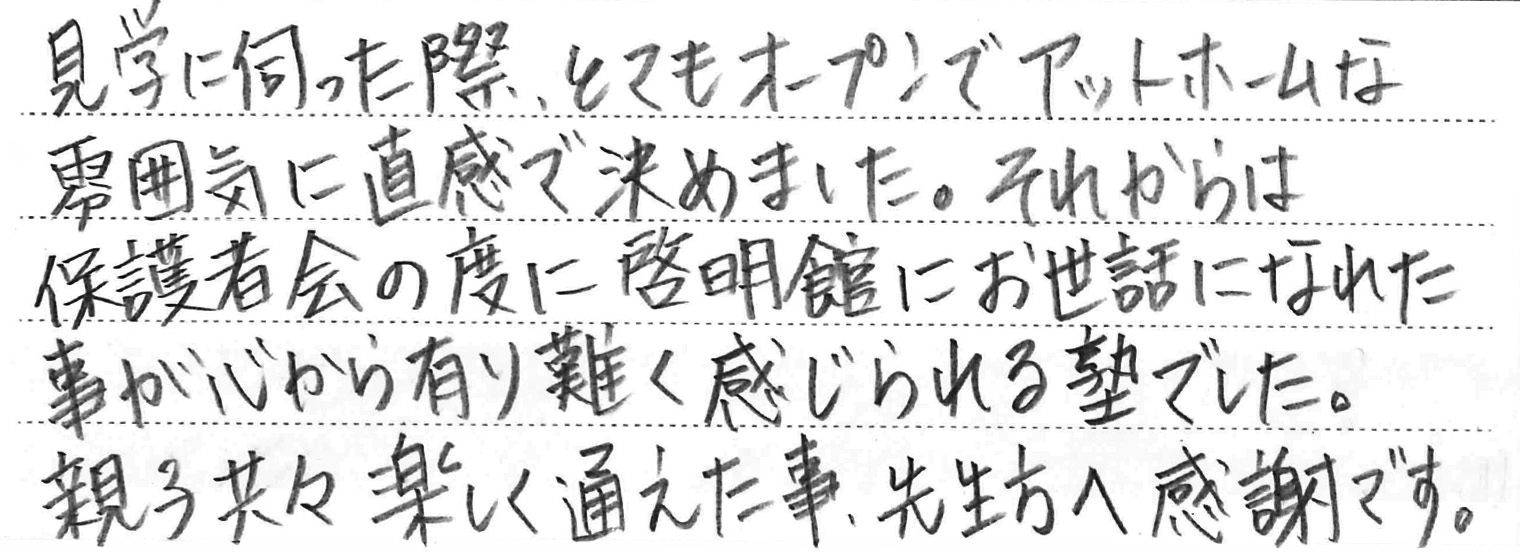 見学に伺った際、とてもオープンでアットホームな
雰囲気に直感で決めました。それからは
保護者会の度に啓明館にお世話になれた
事が心から有り難く感じられる塾でした。
親子共々楽しく通えた事、先生方へ感謝です。